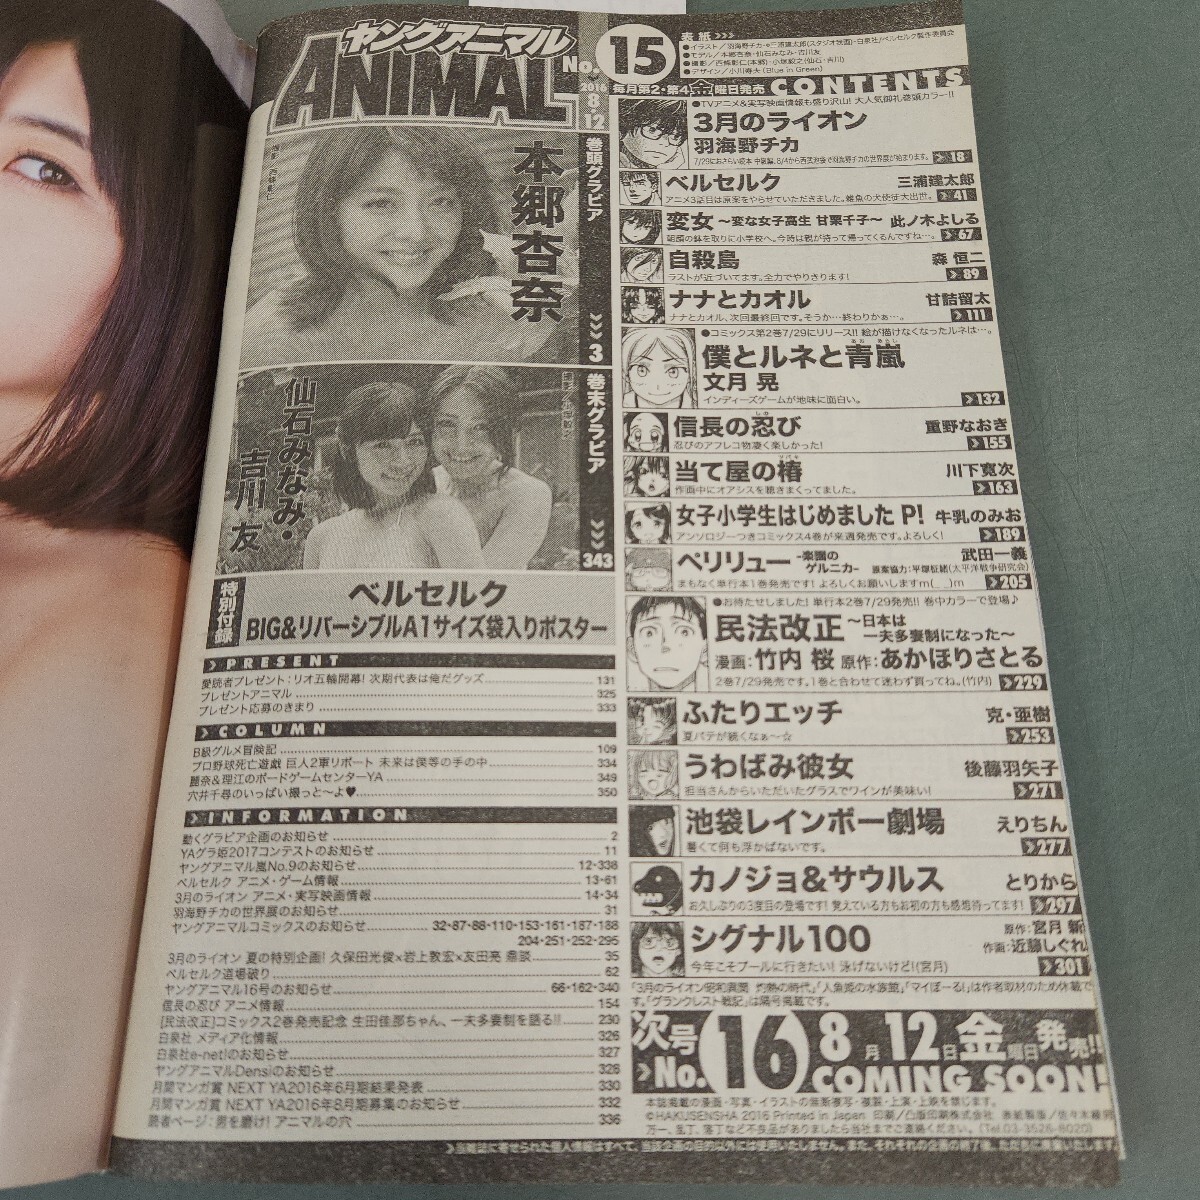 ヤングアニマル
ANIMAL
No.15
2016
8・12
毎月第2・第4金曜日発売
CONTENTS
表紙>>>
●イラスト／羽海野チカ・©三浦建太郎(スタジオ我画)・白泉社/ベルセルク製作委員会
●モデル／本郷杏奈・仙石みなみ・吉川友
●撮影／西條彰仁(本郷)・小塚毅之(仙石・吉川)
●デザイン／小川寿夫(Blue in Green)
巻頭グラビア
本郷杏奈
撮影／西條彰仁
>>>3
巻末グラビア
仙石みなみ・吉川 友
撮影／小塚毅之
>>>343
特別付録
ベルセルク
BIG&リバーシブルA1サイズ袋入りポスター
PRESENT
愛読者プレゼント：リオ五輪開幕! 次期代表は俺だグッズ 131
プレゼントアニマル 325
プレゼント応募のきまり 333
COLUMN
B級グルメ冒険記 109
プロ野球死亡遊戯 巨人2軍リポート 未来は僕等の手の中 334
麗奈&理江のボードゲームセンターYA 349
穴井千尋のいっぱい撮っと〜よ♥ 350
INFORMATION
動くグラビア企画のお知らせ 2
YAグラ姫2017コンテストのお知らせ 11
ヤングアニマル嵐No.9のお知らせ 12・338
ベルセルク アニメ・ゲーム情報 13・61
3月のライオン アニメ・実写映画情報 14・34
羽海野チカの世界展のお知らせ 31
ヤングアニマルコミックスのお知らせ 32・87・88・110・153・161・187・188
204・251・252・295
3月のライオン 夏の特別企画! 久保田光俊×岩上敦宏×友田亮 鼎談 35
ベルセルク道場破り 62
ヤングアニマル16号のお知らせ 66・162・340
信長の忍び アニメ情報 154
[民法改正]コミックス2巻発売記念 生田佳那ちゃん、一夫多妻制を語る!! 230
白泉社 メディア化情報 326
白泉社e-net!のお知らせ 327
ヤングアニマルDensiのお知らせ 328
月間マンガ賞 NEXT YA2016年6月期結果発表 330
月間マンガ賞 NEXT YA2016年8月期募集のお知らせ 332
読者ページ：男を磨け! アニマルの穴 336
●TVアニメ&実写映画情報も盛り沢山! 大人気御礼巻頭カラー!!
3月のライオン
羽海野チカ
18
ベルセルク 三浦建太郎
アニメ3話目は原案をやらせていただきました。雑魚の犬使徒大出世。 41
変女 〜変な女子高生 甘栗千子〜 此ノ木よしる
朝顔の鉢を取りに小学校へ。今時は親が持って帰ってくるんですね…。 67
自殺島 森 恒二
ラストが近づいてます。全力でやりきります! 89
ナナとカオル 甘詰留太
ナナとカオル、次回最終回です。そうか…終わりかぁ…。 111
●コミックス第2巻7/29にリリース!! 絵が描けなくなったルネは…。
僕とルネと青嵐
あお あらし
文月 晃
インディーズゲームが地味に面白い。 132
信長の忍び 重野なおき
しの
忍びのアフレコ物凄く楽しかった! 155
当て屋の椿 川下寛次
ツバキ
作画中にオアシスを聴きまくってました。 163
女子小学生はじめました P! 牛乳のみお
アンソロジーつきコミックス4巻が来週発売です。よろしく! 189
ペリリュー -楽園のゲルニカ- 武田一義
原案協力：平塚柾緒(太平洋戦争研究会)
まもなく単行本1巻発売です! よろしくお願いしますm(_ _)m 205
●お待たせしました! 単行本2巻7/29発売!! 巻中カラーで登場♪
民法改正 〜日本は一夫多妻制になった〜
漫画：竹内 桜 原作：あかほりさとる
2巻7/29発売です。1巻と合わせて迷わず買ってね。(竹内) 229
ふたりエッチ 克・亜樹
夏バテが続くなぁ〜☆ 253
うわばみ彼女 後藤羽矢子
担当さんからいただいたグラスでワインが美味い! 271
池袋レインボー劇場 えりちん
暑くて何も浮かばないです。 277
カノジョ&サウルス とりから
お久しぶりの3度目の登場です! 覚えている方もお初の方も感想待ってます! 297
シグナル100 原作：宮月 新
作画：近藤しぐれ
今年こそプールに行きたい! 泳げないけど!(宮月) 301
「3月のライオン昭和異聞 灼熱の時代」「人魚姫の水族館」「マイぼーる!」は作者取材のため休載です。「グランクレスト戦記」は隔号掲載です。
次号 No.16 8月12日金曜日発売!!
COMING SOON!
本誌掲載の漫画・写真・イラストの無断複写・複製・上演・上映を禁じます。
©HAKUSENSHA 2016 Printed in Japan 印刷／凸版印刷株式会社
万一、乱丁、落丁など不良品がありましたら当社までご連絡ください。(Tel.03-3526-8020)
当雑誌に寄せられた個人情報はすべて、当該企画の目的以外には使用いたしません。また、それぞれの企画の終了後、ただちに